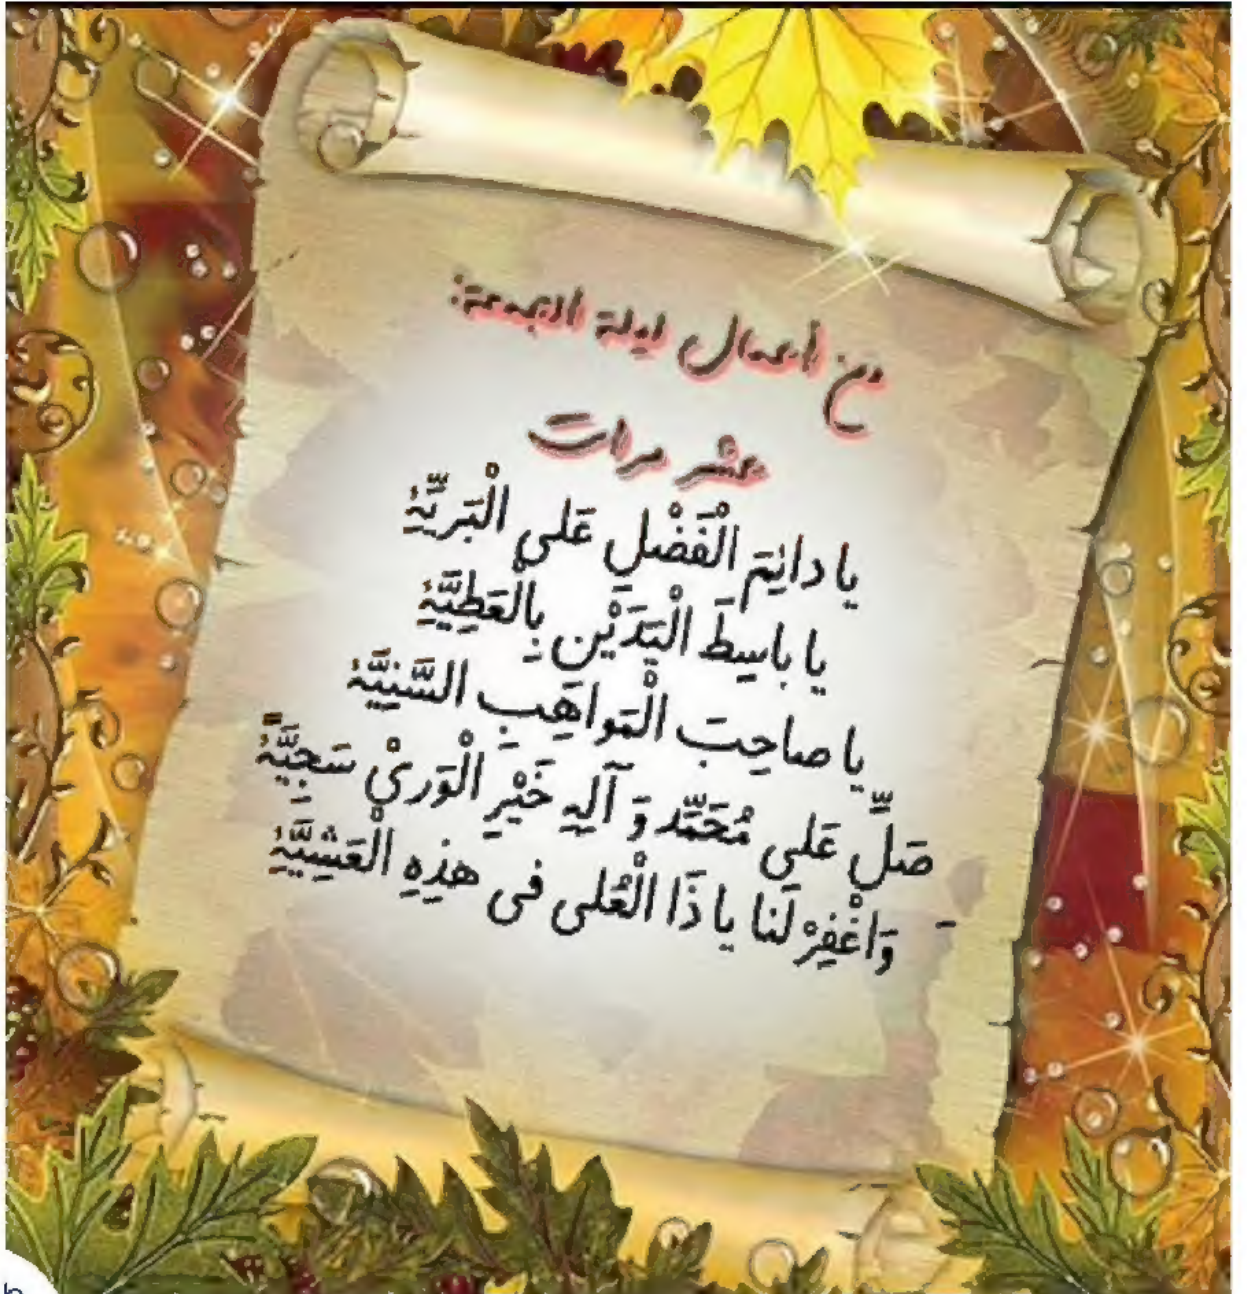 من أعمال ليلة الجمعة:
عشر مرات
يا دائِمَ الْفَضْلِ عَلى الْبَريَّةِ
يا باسِطَ الْيَدَيْنِ بِالْعَطِيَّةِ
يا صاحِبَ الْمَواهِبِ السَّنِيَّةِ
صَلِّ عَلى مُحَمَّد وَ آلِهِ خَيْرِ الْوَرىْ سَجِيَّةً
وَاغْفِرْ لَنا يا ذَا الْعُلى فى هذِهِ الْعَشِيَّةِ